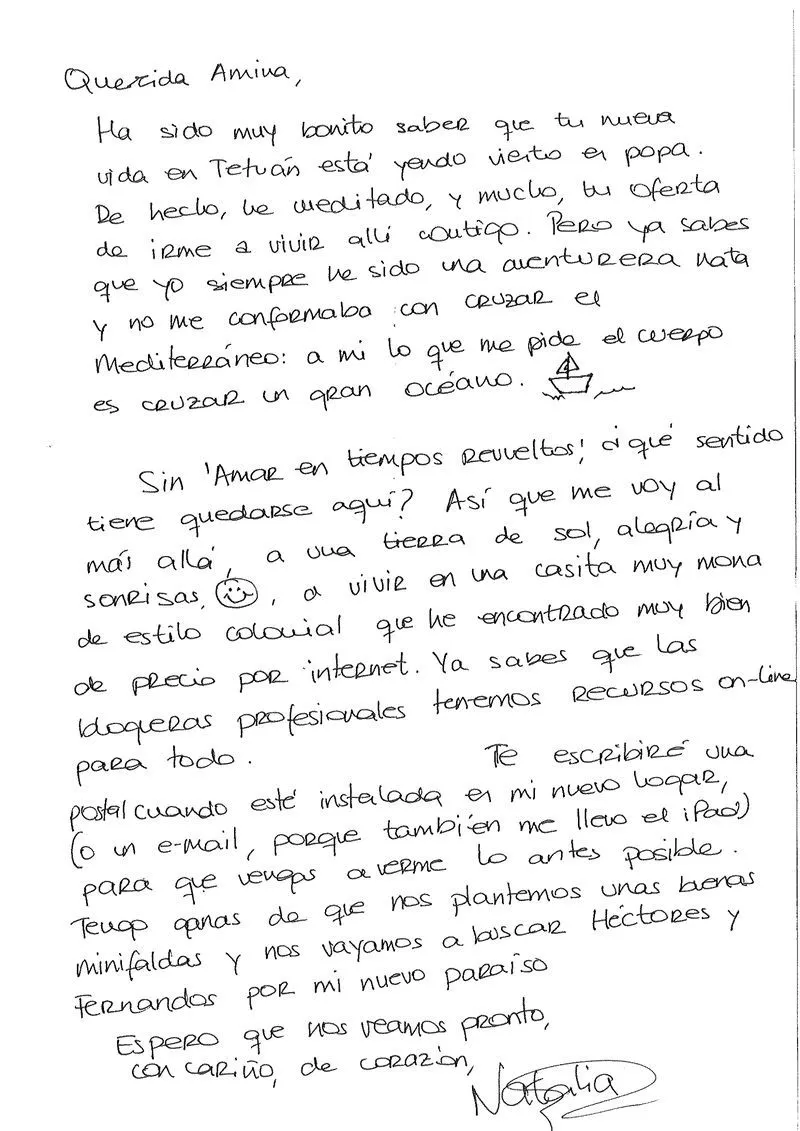 Querida Amina,
Ha sido muy bonito saber que tu nueva
vida en Tetuán está yendo viento en popa.
De hecho, he meditado, y mucho, tu oferta
de irme a vivir allí contigo. Pero ya sabes
que yo siempre he sido una aventurera nata
y no me conformaba con cruzar el
Mediterráneo: a mi lo que me pide el cuerpo
es cruzar un gran océano.
Sin 'Amar en tiempos revueltos', ¿qué sentido
tiene quedarse aquí? Así que me voy al
más allá, a una tierra de sol, alegría y
sonrisas, a vivir en una casita muy mona
de estilo colonial que he encontrado muy bien
de precio por internet. Ya sabes que las
blogueras profesionales tenemos recursos on-line
para todo. Te escribiré una
postal cuando esté instalada en mi nuevo hogar,
(o un e-mail, porque también me llevo el iPad)
para que vengas a verme lo antes posible.
Tengo ganas de que nos plantemos unas buenas
minifaldas y nos vayamos a buscar Héctores y
Fernandos por mi nuevo paraíso
Espero que nos veamos pronto,
con cariño, de corazón,
Natalia